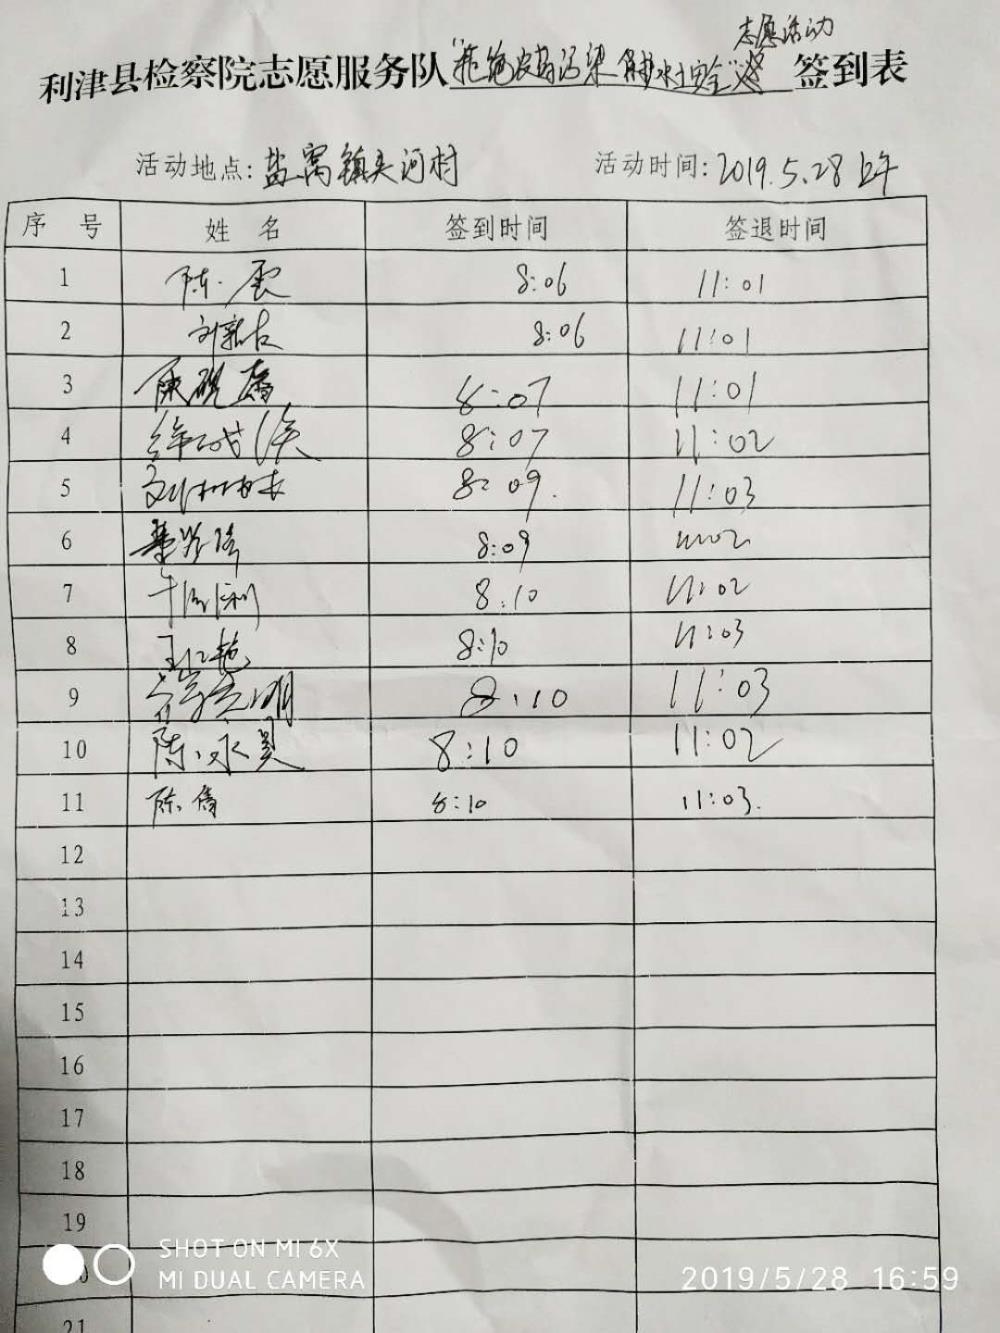 志愿活动
利津县检察院志愿服务队"拒绝 污染 保护水土安全" 签到表
活动地点:盐窝镇夹河村 活动时间:2019.5.28上午
序 号 姓 名 签到时间 签退时间
1 陈震 8:06 11:01
2 8:06 11:01
3 8:07 11:01
4 8:07 11:02
5 8:09. 11:03
6 8:09 11:02
7 8:10 11:02
8 王红艳 8:10 11:03
9 8:10 11:03
10 陈永昊 8:10 11:02
11 陈倩 8:10 11:03.
12
13
14
15
16
17
18
19
SHOT ON MI 6X
MI DUAL CAMERA
2019/5/28 16:59
21